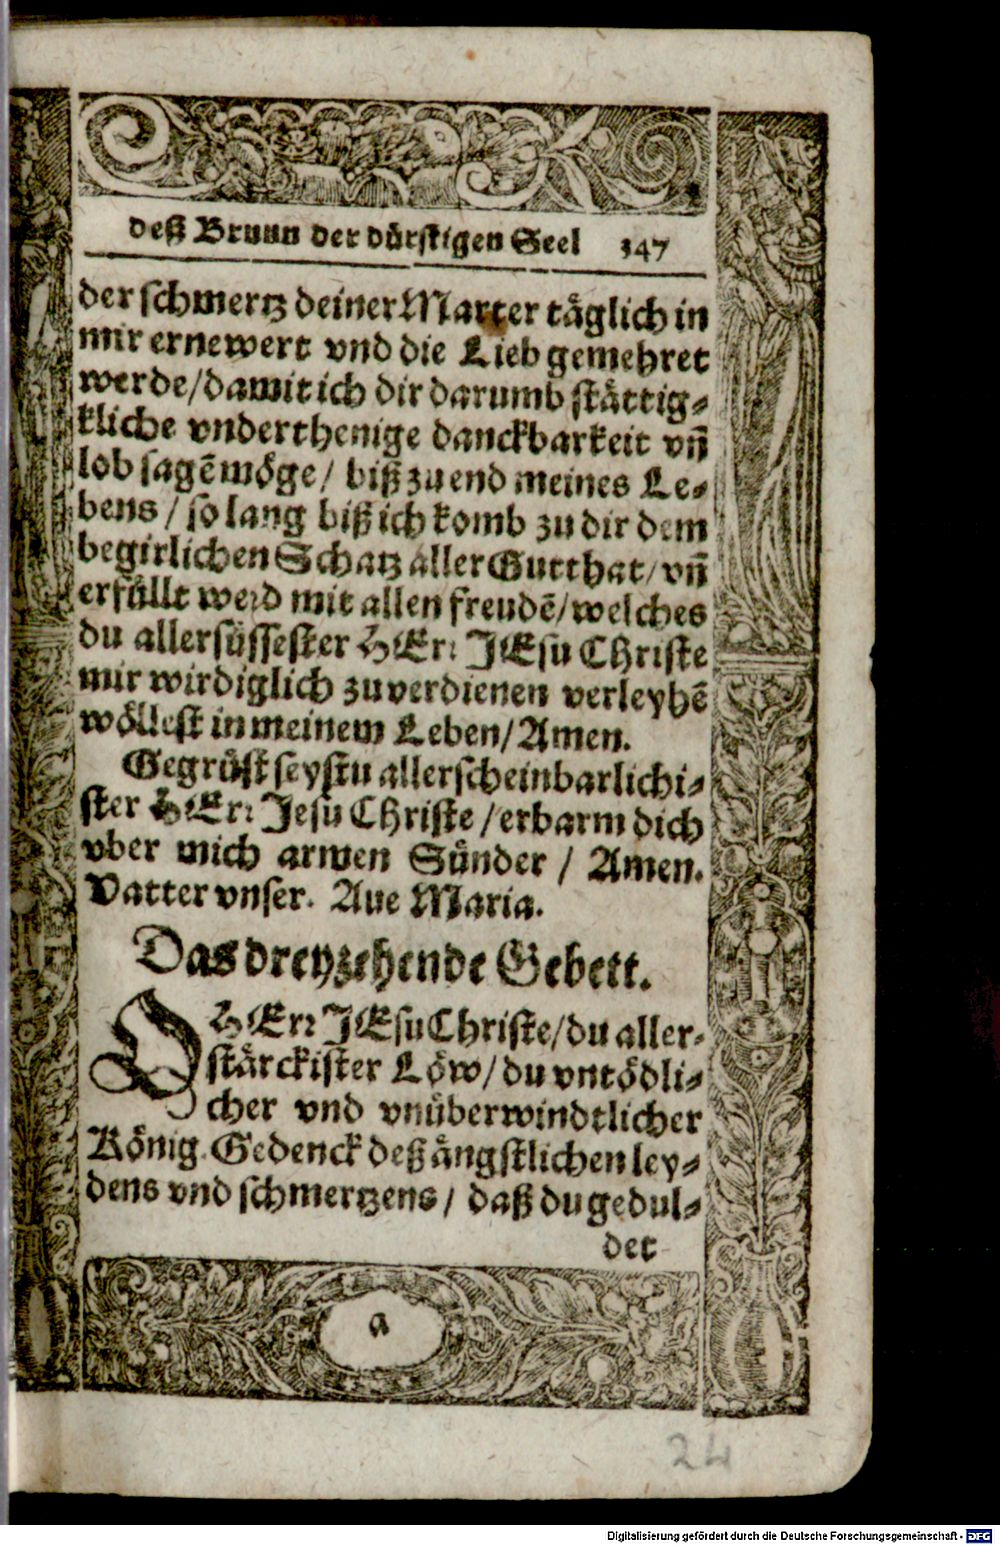 deß Brunn der dürstigen Seel 347
der schmertz deiner Marter täglich in
mir ernewert vnd die Lieb gemehret
werde/damit ich dir darumb stättig⸗
kliche vnderthenige danckbarkeit vñ
lob sagẽ möge/ biß zu end meines Le⸗
bens/ so lang biß ich komb zu dir dem
begirlichen Schatz aller Gutthat/ vñ
erfüllt werd mit allen freudẽ/welches
du allersüssester HErr JEsu Christe
mir wirdiglich zuverdienen verleyhẽ
wöllest in meinem Leben/Amen.
Gegrüst seystu allerscheinbarlichi⸗
ster HErr Jesu Christe/erbarm dich
vber mich armen Sünder/ Amen.
Vatter vnser. Aue Maria.
Das dreyzehende Gebett.
O HErr JEsu Christe/du aller⸗
stärckister Löw/du vntödli⸗
cher vnd vnüberwindtlicher
König. Gedenck deß ängstlichen ley⸗
dens vnd schmertzens/ daß du gedul⸗
det
a
24
Digitalisierung gefördert durch die Deutsche Forschungsgemeinschaft - DFG